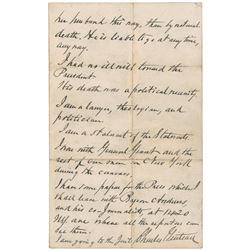 her husband this way, than by natural
death. He is liable to go at any time,
any way.
I had no ill will toward the
President.
His death was a political necessity.
I am a lawyer, theologian, and
politician.
I am a stalwart of the Stalwarts.
I was with General Grant and the
rest of our men in New York
during the canvass.
I have some papers for the Press which I
shall leave with Byron Andrews
and his co-Journalists, at 1420
N.Y. ave where all the reporters can
see them.
I am going to the Jail. Charles Guiteau